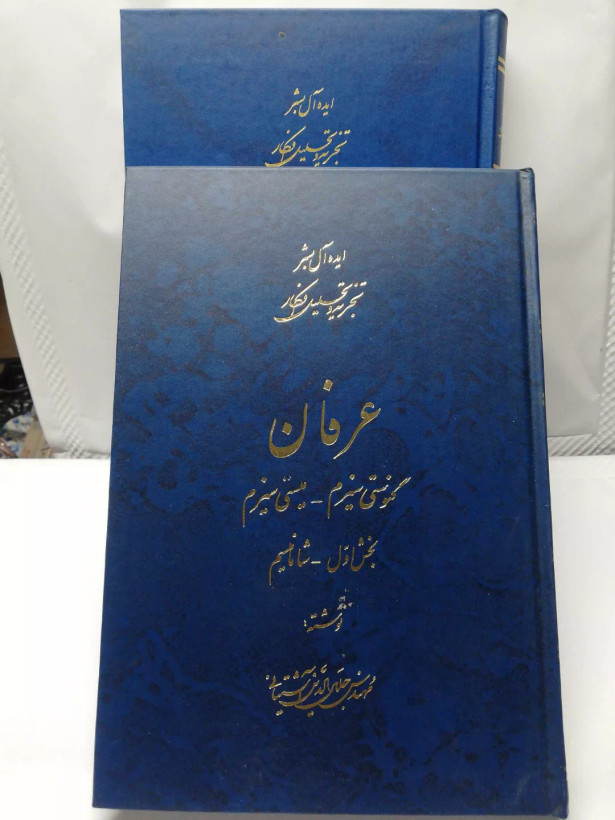 ایده آل بشر
تجزیه و تحلیل افکار
ایده آل بشر
تجزیه و تحلیل افکار
عرفان
گنوستی سیزم - میستی سیزم
بخش اول - شامانیسم
نوشته:
مهندس جلال الدین آشتیانی